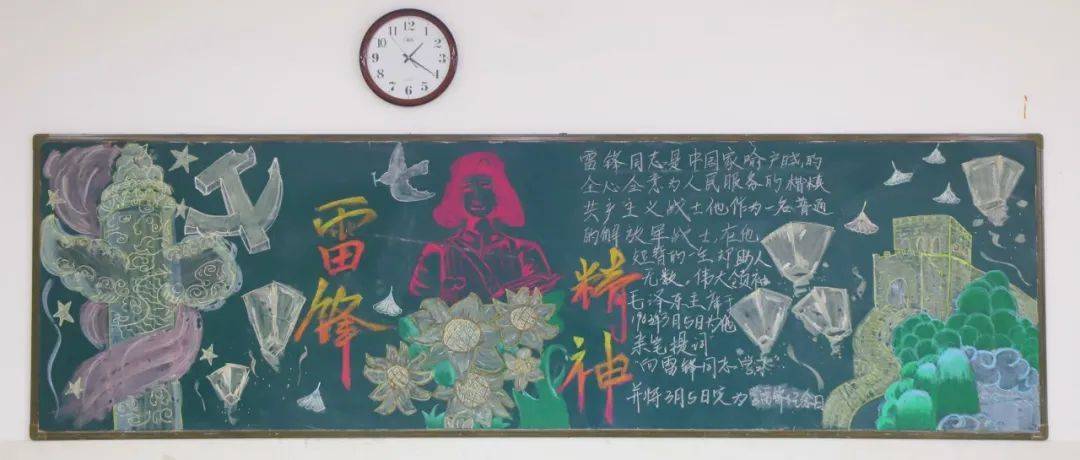 雷锋
精神
雷锋同志是中国家喻户晓的
全心全意为人民服务的楷模
共产主义战士他作为一名普通
的解放军战士,在他
短暂的一生却助人
无数。伟大领袖
毛泽东主席于
1963年3月5日为他
亲笔提词
"向雷锋同志学习"
并将3月5日定为纪念日
12
1
2
3
4
5
6
7
8
9
10
11